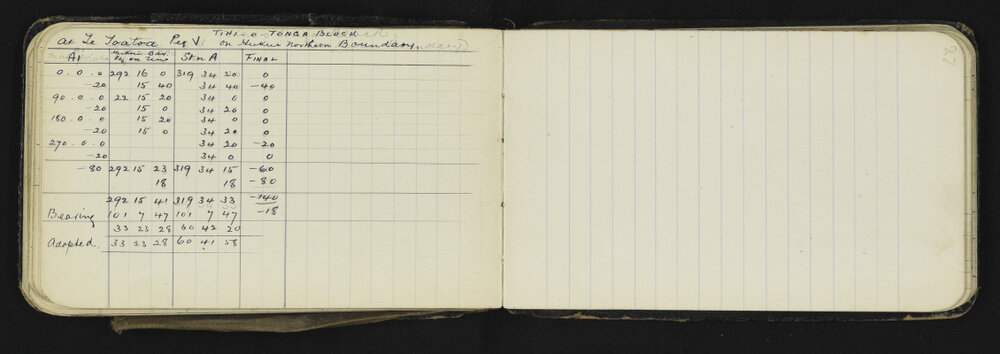 TIHIO-TONGA BLOCK
at Te Toatoa Peg V on Hukui Northern Boundary.
At Hukui Bdy. Peg on Line Stn A FINAL
0 . 0 . 0 292 16 0 319 34 20 0
-20 15 40 34 40 -40
90 . 0 . 0 22 15 20 34 0 0
-20 15 0 34 20 0
180 . 0 . 0 15 20 34 0 0
-20 15 0 34 20 0
270 . 0 . 0 34 20 -20
-20 34 0 0
-80 292 15 23 319 34 15 -60
18 18 -80
292 15 41 319 34 33 -140
Bearing 101 7 47 101 7 47 -18
33 23 28 60 42 20
Adopted. 33 23 28 60 41 58
27